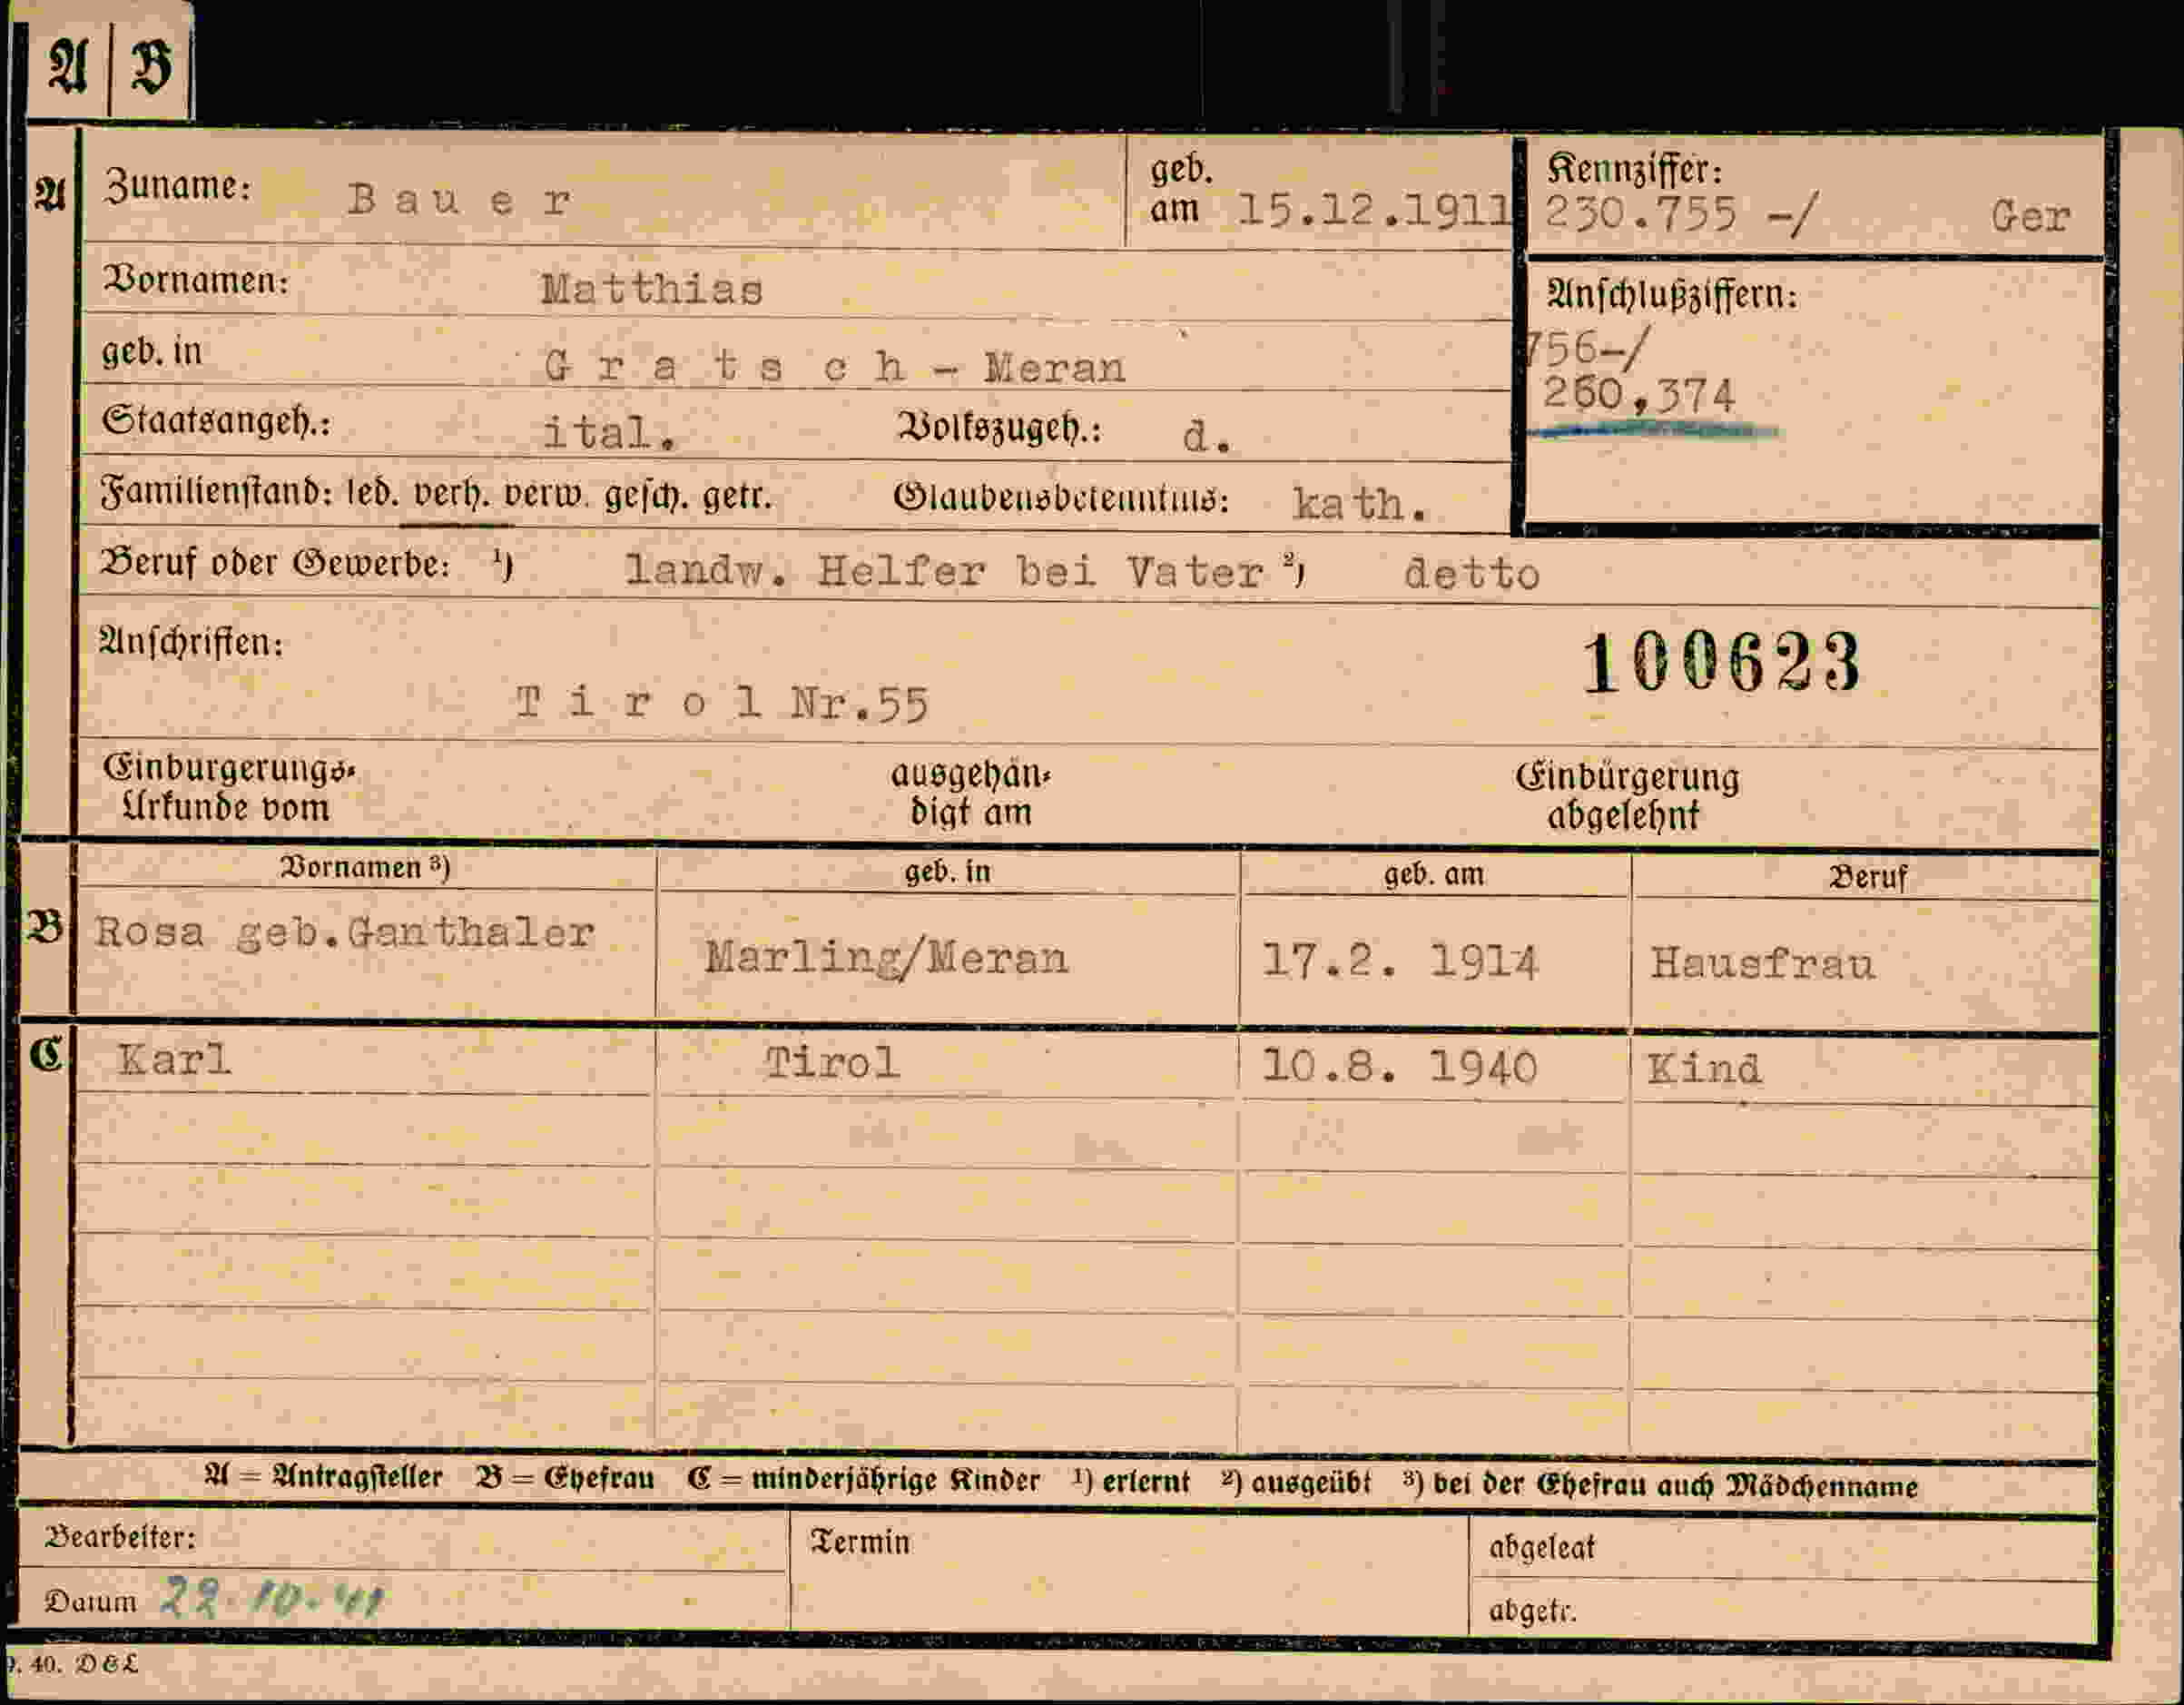 A B
A Zuname: Bauer geb. am 15.12.1911 Kennziffer: 230.755 -/ Ger
Vornamen: Matthias Anschlußziffern:
geb. in Gratsch - Meran 756-/
Staatsangeh.: ital. Volkszugeh.: d. 260,374
Familienstand: led. verh. verw. gesch. getr. Glaubensbekenntnis: kath.
Beruf oder Gewerbe: ¹) landw. Helfer bei Vater ²) detto
Anschriften: 100623
Tirol Nr.55
Einbürgerungs- ausgehän- Einbürgerung
Urkunde vom digt am abgelehnt
Vornamen ³) geb. in geb. am Beruf
B Rosa geb.Ganthaler Marling/Meran 17.2. 1914 Hausfrau
C Karl Tirol 10.8. 1940 Kind
A = Antragsteller B = Ehefrau C = minderjährige Kinder ¹) erlernt ²) ausgeübt ³) bei der Ehefrau auch Mädchenname
Bearbeiter: Termin abgelegt
Datum 22.10.41 abgetr.
40. D&L